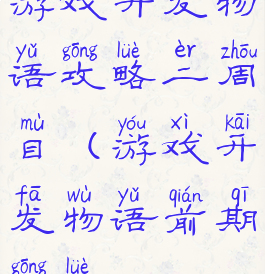 游戏开发物
yǔ gōng lüè èr zhōu
语攻略二周
mù yóu xì kāi
目（游戏开
fā wù yǔ qián qī
发物语前期
gōng lüè